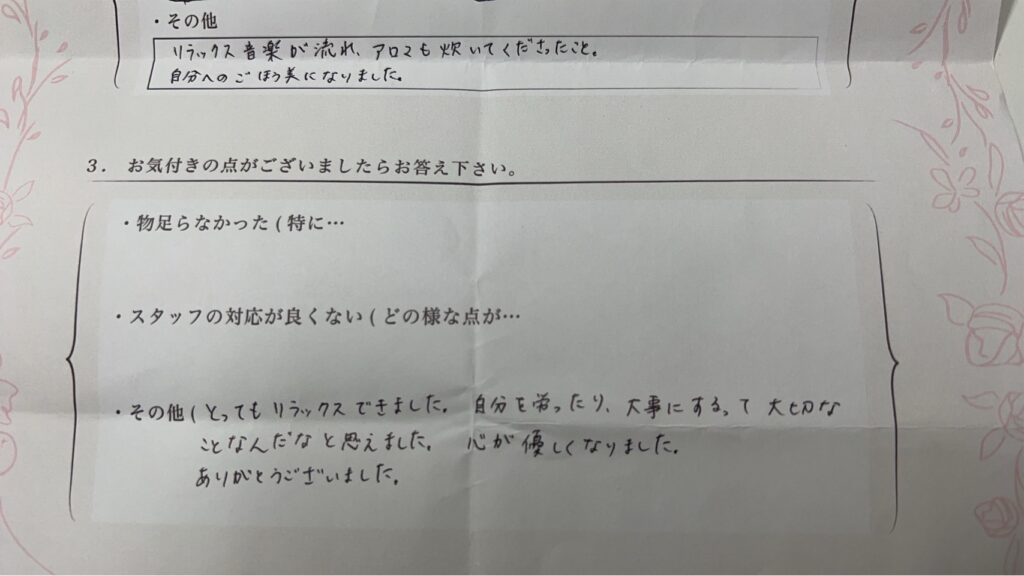 ・その他
リラックス音楽が流れ、アロマも炊いてくださったこと。
自分へのごほう美になりました。
3. お気付きの点がございましたらお答え下さい。
・物足らなかった ( 特に…
・スタッフの対応が良くない ( どの様な点が…
・その他 ( とってもリラックスできました。 自分を労ったり、大事にするって大切な
ことなんだなと思えました。 心が優しくなりました。
ありがとうございました。